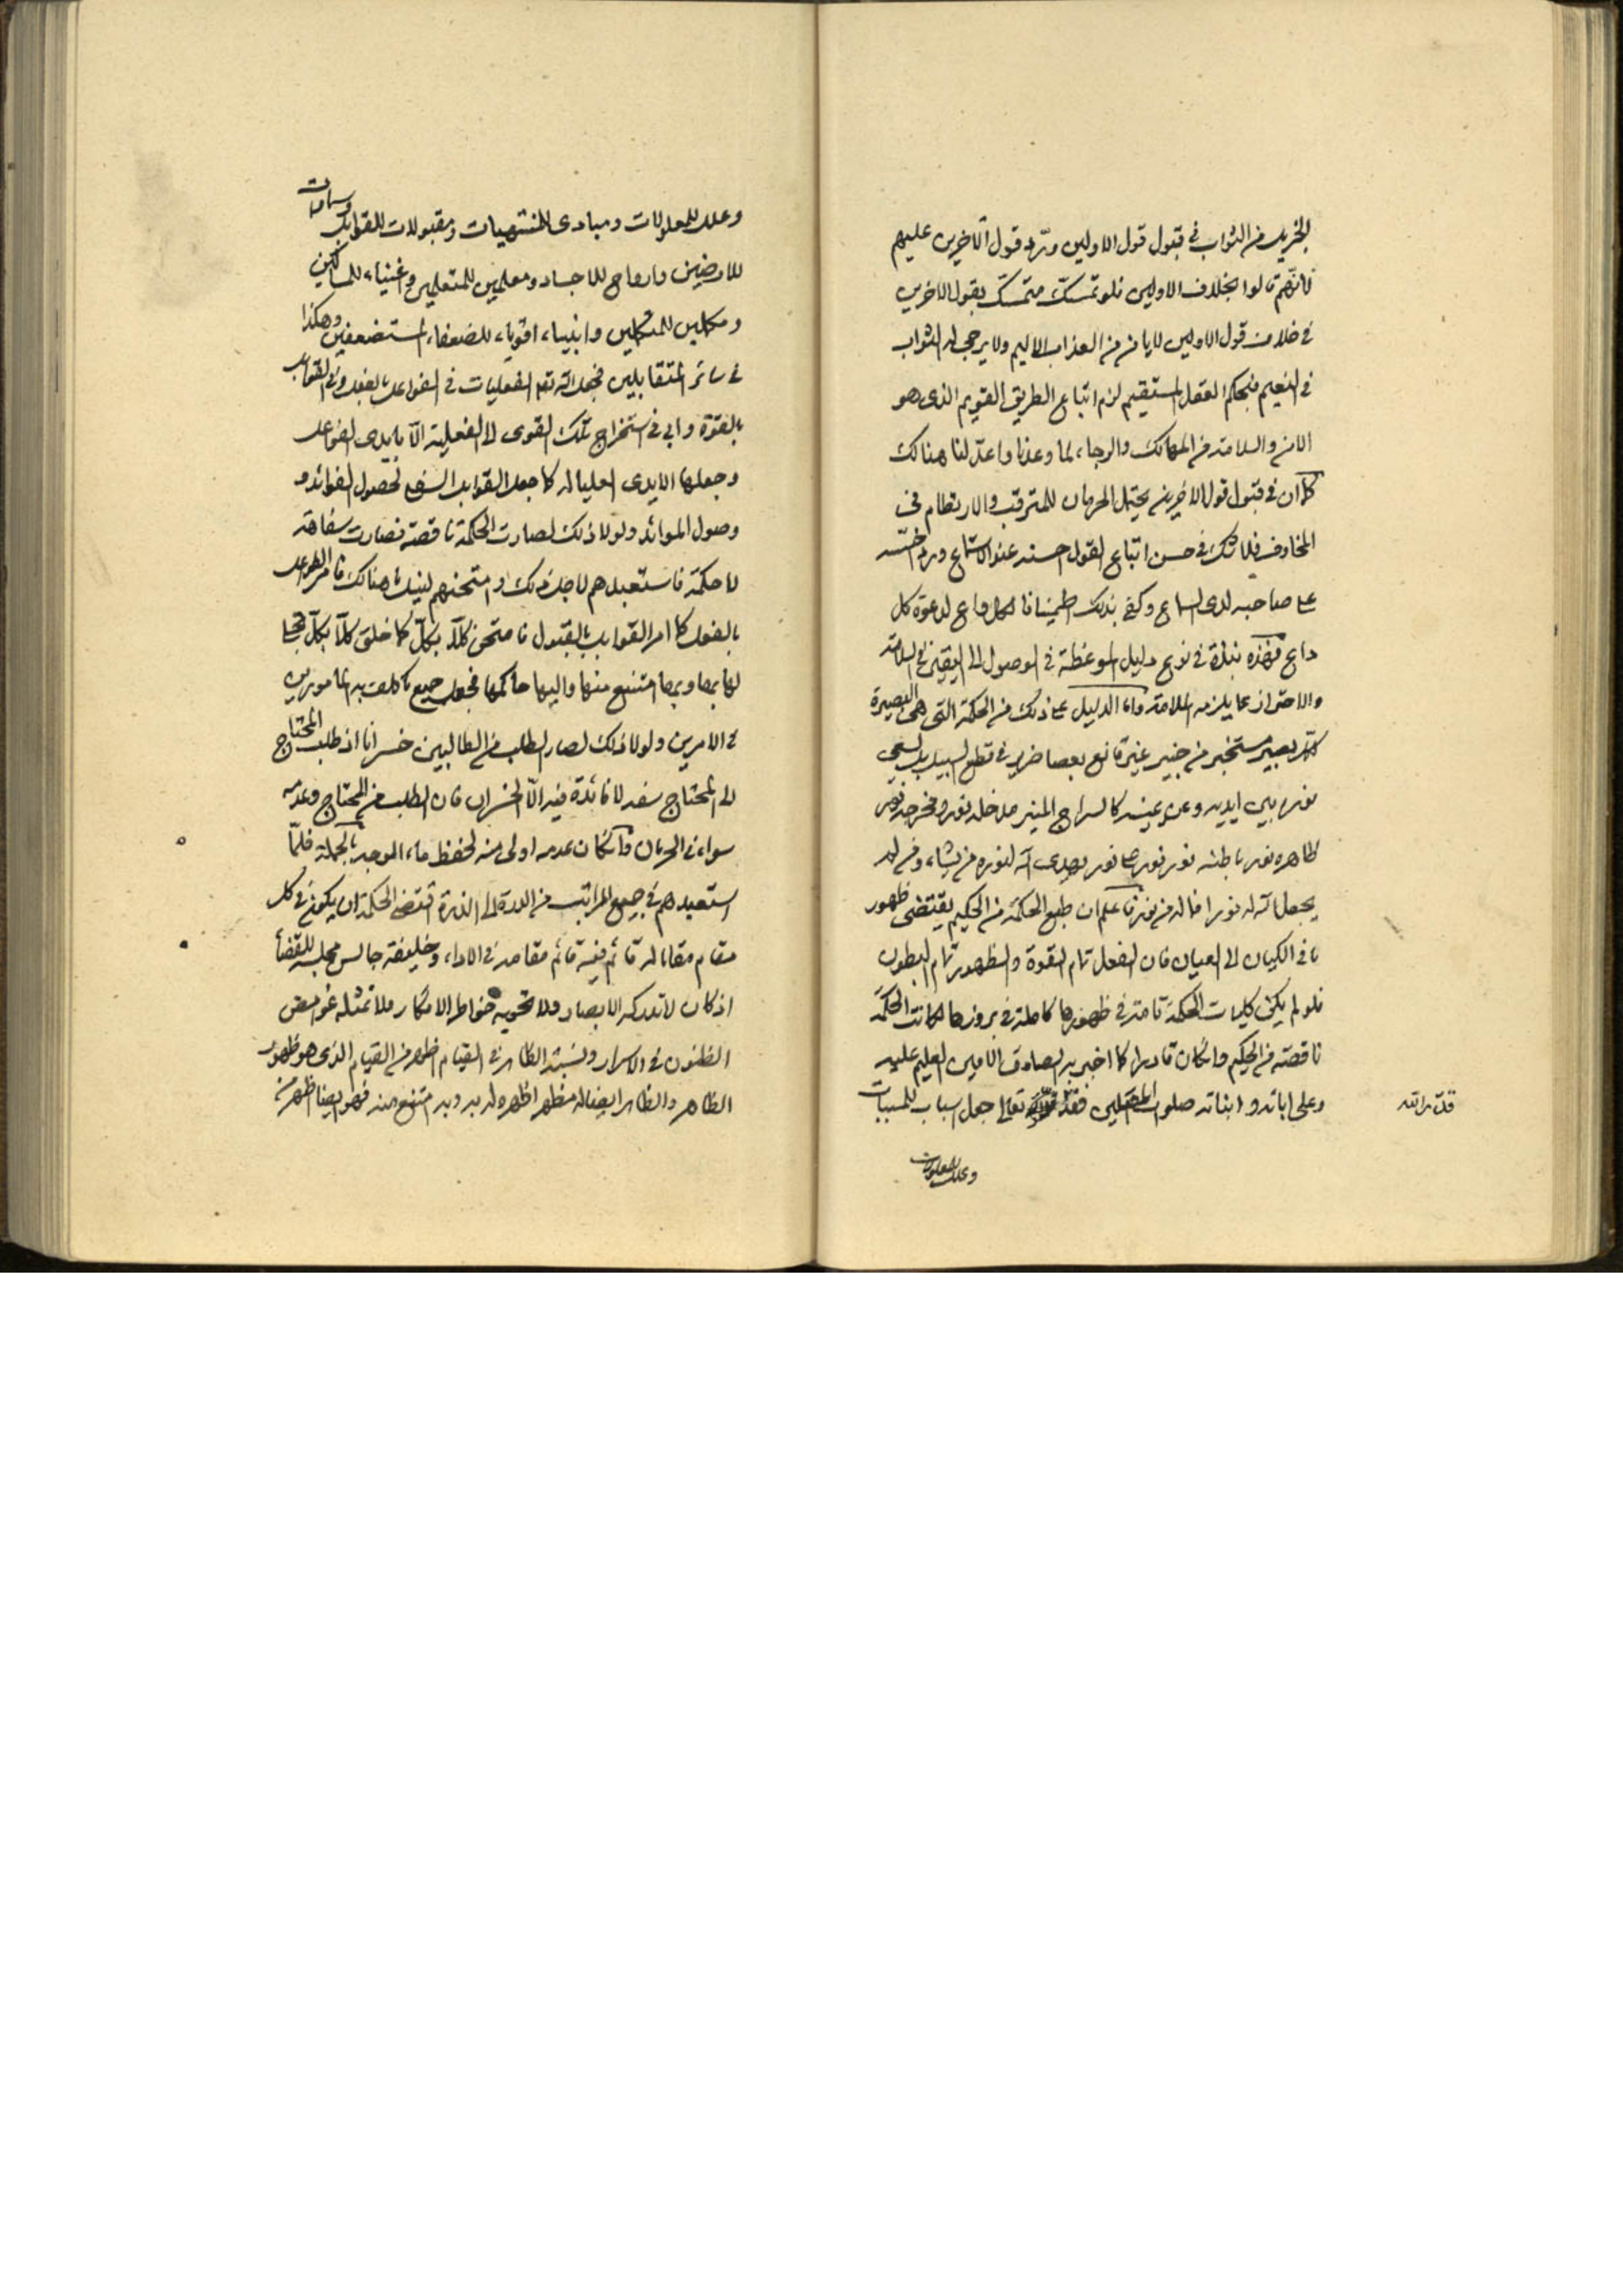 الجزيل من الثواب في قبول قول الاولين وردّ قول الآخرين عليهم
فانّهم قالوا بخلاف الاولين فلو تمسّك متمسّك بقول الآخرين
في خلاف قول الاولين لا يامن من العذاب الاليم ولا يرجى له الثواب
في النعيم فبحكم العقل المستقيم لزم اتباع الطريق القويم الذي هو
الامن والسلامة من المهالك والرجاء لما وعدنا واعدّ لنا هنالك
كما ان في قبول قول الآخرين يحتمل الحرمان للمترقب والارتطام في
المخاوف فلا شك في حسن اتباع القول حسنه عند الاستماع ورد
على صاحبه لدى السماع وكفى بذلك اطمينانا لكل واع لدعوة كل
داع فهذه نبذة في نوع دليل الموعظة في الوصول الى اليقين والسلامة
والاحتراز عما يلزمه الملامة واما الدليل على ذلك من الحكمة التي هي البصيرة
لكلّ بصير مستخبر من خبير غير قانع بعصا ضرير في قطع السبيل بل يسعى
نوره بين ايديه وعن يمينه كالسراج المنير مدخله نور ومخرجه نور
ظاهره نور باطنه نور نور على نور يهدى الله لنوره من يشاء ومن لم
يجعل الله له نورا فما له من نور فاعلم ان طبع الحكمة من الحكيم يقتضى ظهور
ما في الكيان الى العيان فان الفعل تمام القوة والظهور تمام البطون
فلو لم يكن كليات الحكمة تامة في ظهورها كاملة في بروزها لكانت الحكمة
ناقصة من الحكيم وان كان قادرا كما اخبر به الصادق الامين العليم عليه
وعلى ابائه وابنائه صلوات المصلين فقد تعالى جعل اسباب للمسببات
وعلل للمعلولات
وعلل للمعلولات ومبادى للمنتهيات ومقبولات للقوابل وسماوات
للارضين وارواح للاجساد ومعلمين للمتعلمين واغنياء للمساكين
ومكملين للمتكملين وانبياء اقوياء للضعفاء المستضعفين وهكذا
في سائر المتقابلين فجعل الله تعالى الفعليات في الفواعل بالفعل وفي القوابل
بالقوة وابى في استخراج تلك القوى الى الفعلية الّا بايدى الفواعل
وجعلها الايدى العليا له كما جعل القوابل السفلى لحصول الفوائد و
وصول الموائد ولولا ذلك لصارت الحكمة ناقصة فصارت سفاهة
لا حكمة فاستعبدهم لاجل ذلك وامتحنهم لنيل ما هنالك فامر الفواعل
بالفعل كما امر القوابل بالقبول فامتحن كلّا بكلّ كما خلق كلّا بكلّ تجلى
لها بها وبها امتنع منها واليها حاكمها فجعل جميع ما كلف به المامورين
في الامرين ولولا ذلك لصار الطلب من الطالبين خسرانا اذ طلب المحتاج
الى المحتاج سفه لا فائدة فيه الّا الخسران فان الطلب من المحتاج وعدمه
سواء في الحرمان وان كان عدمه اولى منه لحفظ ماء الوجه بالجملة فلمّا
استعبدهم في جميع المراتب من الدرة الى الذرة اقتضى الحكمة ان يكون في كل
مقام مقاما له قائم فيه قائم مقامه في الاداء وخليفة جالس مجلسه للقضاء
اذ كان لا تدركه الابصار ولا تحويه خواطر الافكار ولا تمثله غوامض
الظنون في الاسرار ونسبة الظاهر في القيام اظهر من القيام الذي هو ظهور
الظاهر والظاهر ايضا له مظهر اظهره له به وبه امتنع منه فهو ايضا اظهر من